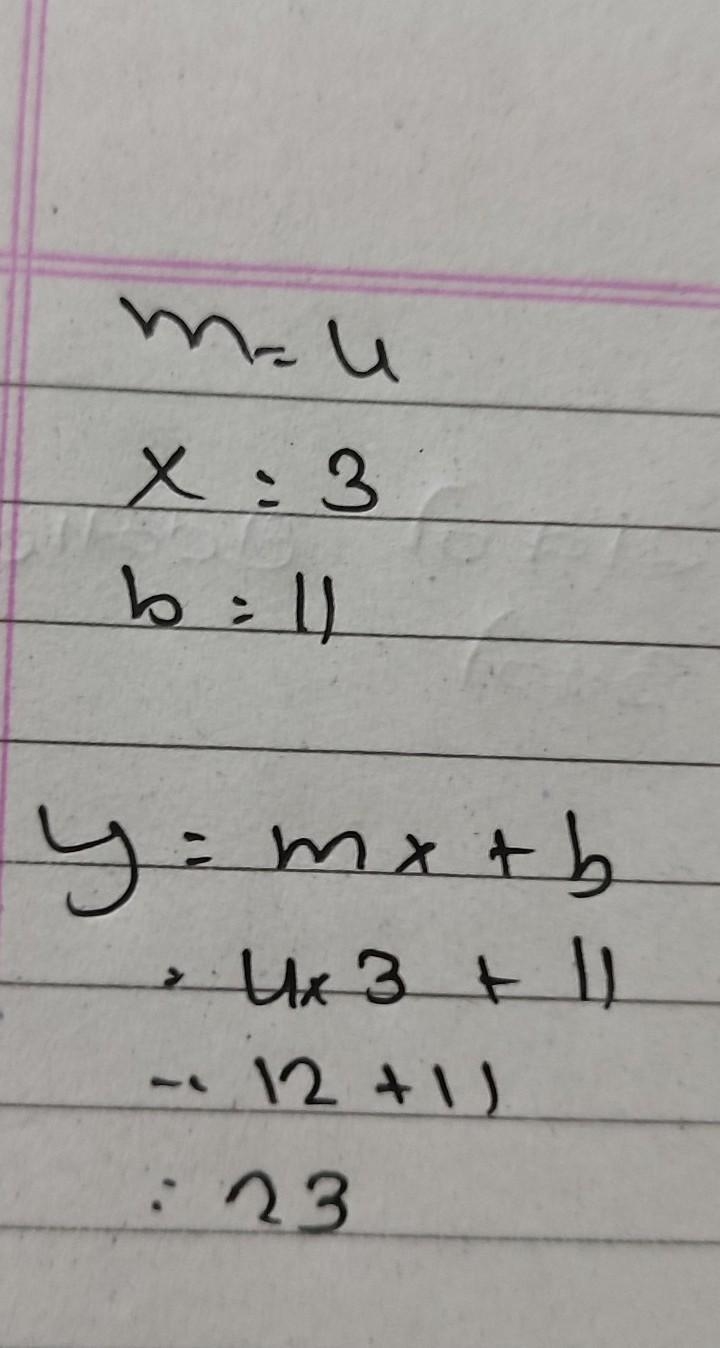 m = 4
x = 3
b = 11
y = mx + b
= 4x3 + 11
= 12 + 11
= 23